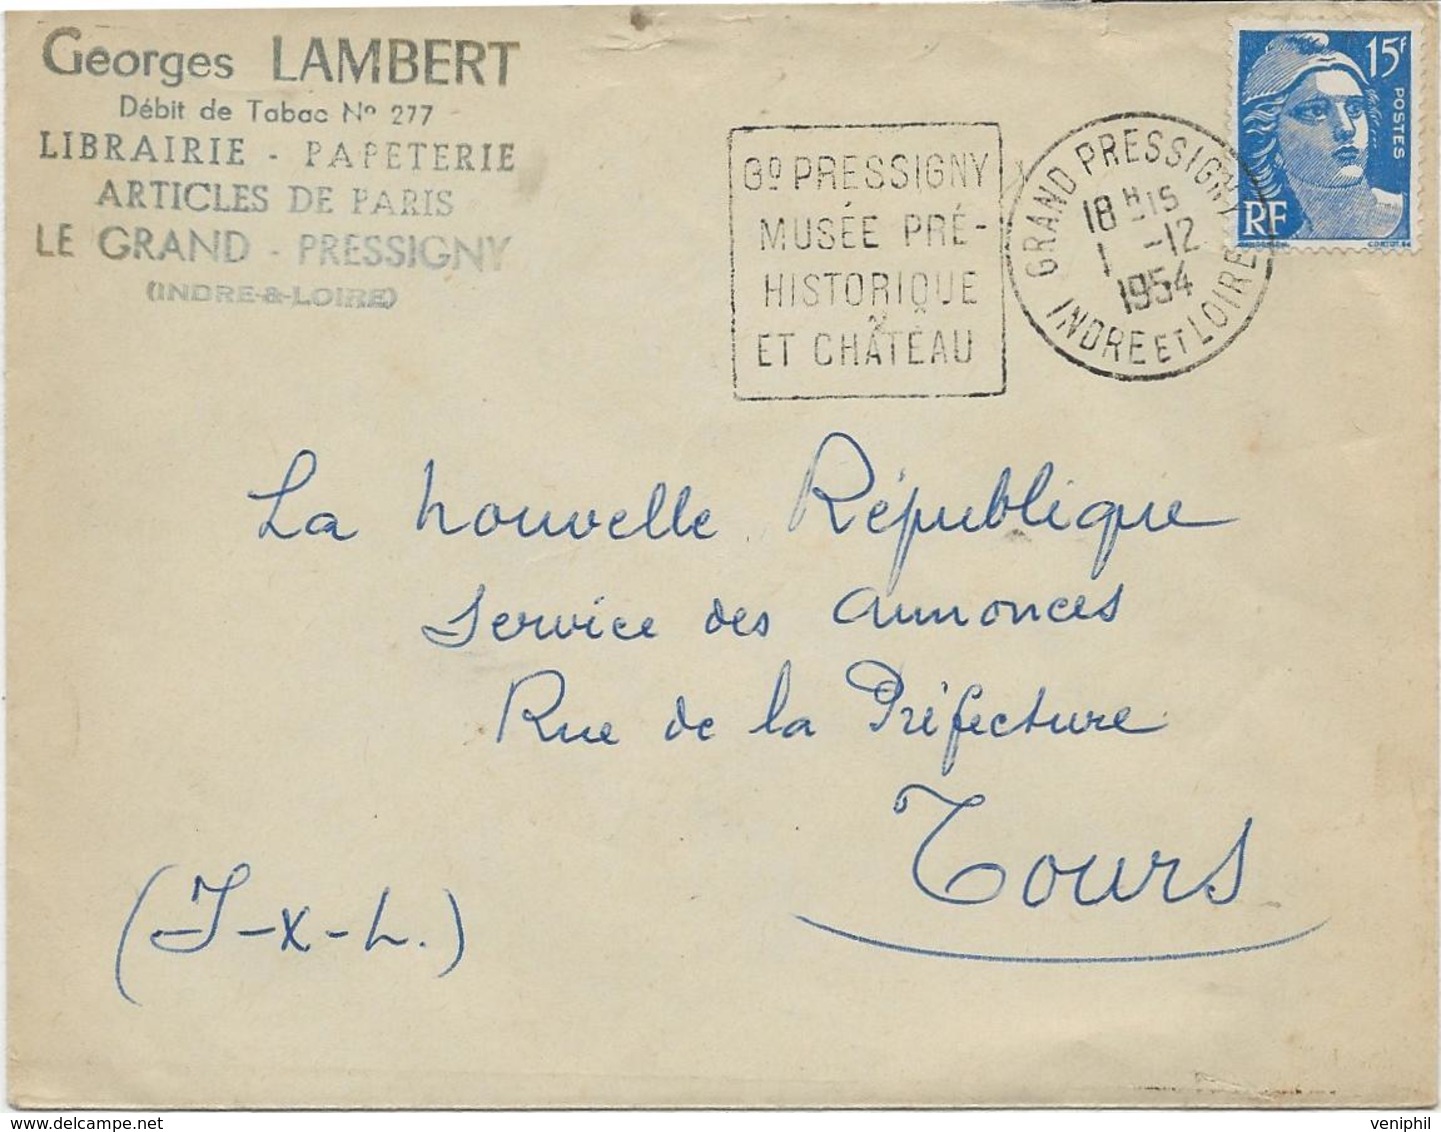 Georges LAMBERT
Débit de Tabac Nº 277
LIBRAIRIE - PAPETERIE
ARTICLES DE PARIS
LE GRAND - PRESSIGNY
(INDRE-&-LOIRE)
Gº PRESSIGNY
MUSÉE PRÉ-
HISTORIQUE
ET CHÂTEAU
GRAND PRESSIGNY
18 H 15
1 -12
1954
INDRE ET LOIRE
15F
POSTES
RF
La nouvelle République
Service des annonces
Rue de la Préfecture
Tours
(I-x-L.)
veniphil